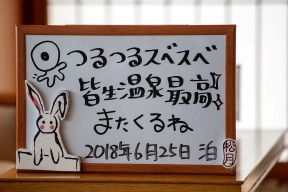 つるつるスベスベ
皆生温泉最高!!
またくるね
2018年6月25日 泊
松月